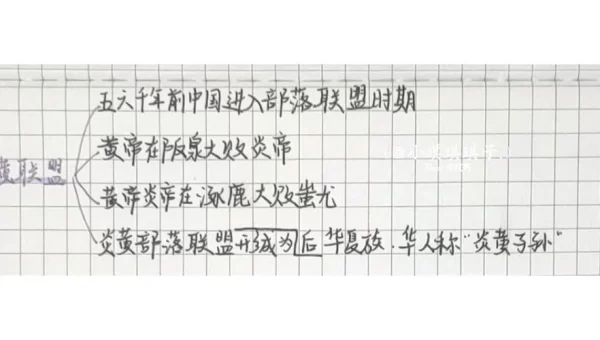 五六千年前中国进入部落联盟时期
黄帝在阪泉大败炎帝
黄联盟
黄帝炎帝在涿鹿大败蚩尤
炎黄部落联盟形成为后华夏族.华人称“炎黄子孙”